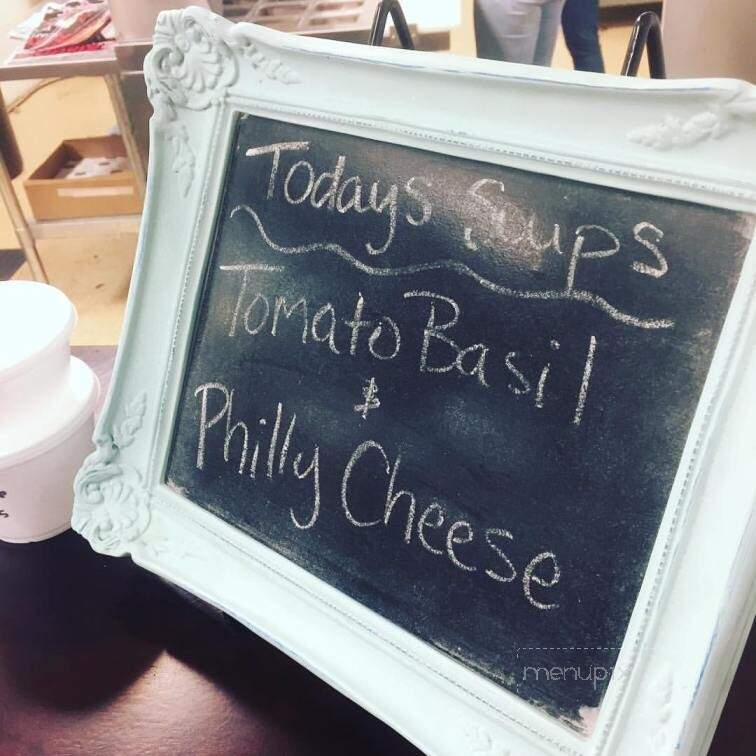 Todays Soups
Tomato Basil
&
Philly Cheese